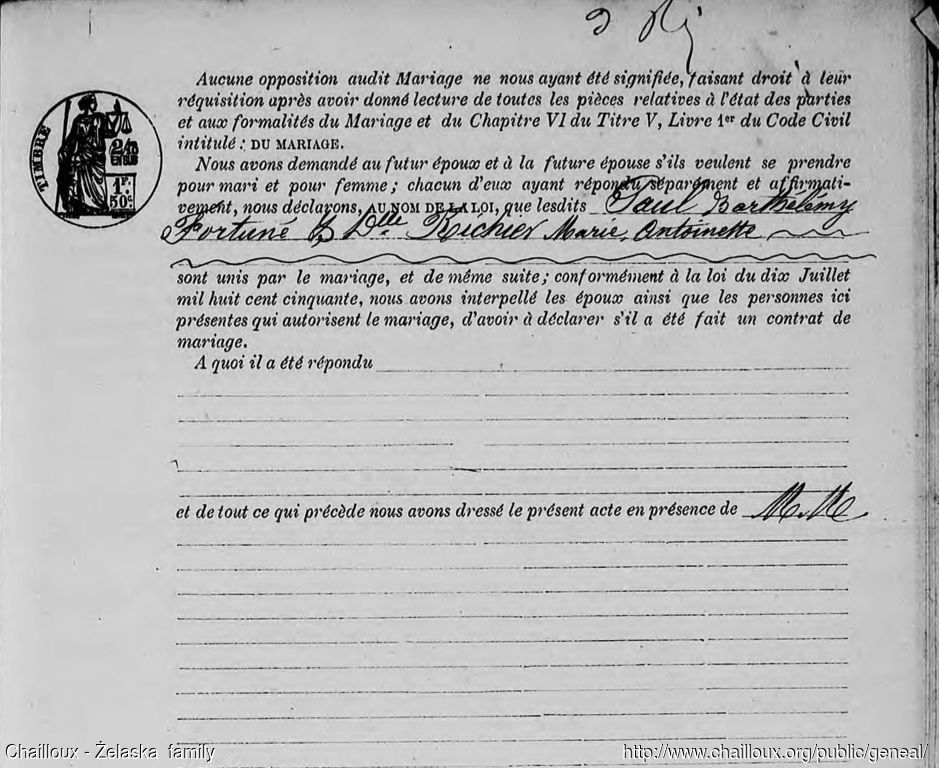 TIMBRE
2/10
EN SUS
1 Fr.
50c.
Aucune opposition audit Mariage ne nous ayant été signifiée, faisant droit à leur
réquisition après avoir donné lecture de toutes les pièces relatives à l'état des parties
et aux formalités du Mariage et du Chapitre VI du Titre V, Livre 1er du Code Civil
intitulé : DU MARIAGE.
Nous avons demandé au futur époux et à la future épouse s'ils veulent se prendre
pour mari et pour femme ; chacun d'eux ayant répondu séparément et affirmati-
vement, nous déclarons, AU NOM DE LA LOI, que lesdits Paul Barthélemy
Fortuné & Dlle Richier Marie, Antoinette
sont unis par le mariage, et de même suite ; conformément à la loi du dix Juillet
mil huit cent cinquante, nous avons interpellé les époux ainsi que les personnes ici
présentes qui autorisent le mariage, d'avoir à déclarer s'il a été fait un contrat de
mariage.
A quoi il a été répondu
et de tout ce qui précède nous avons dressé le présent acte en présence de M.M
Chailloux - Želaska family
http://www.chailloux.org/public/geneal/